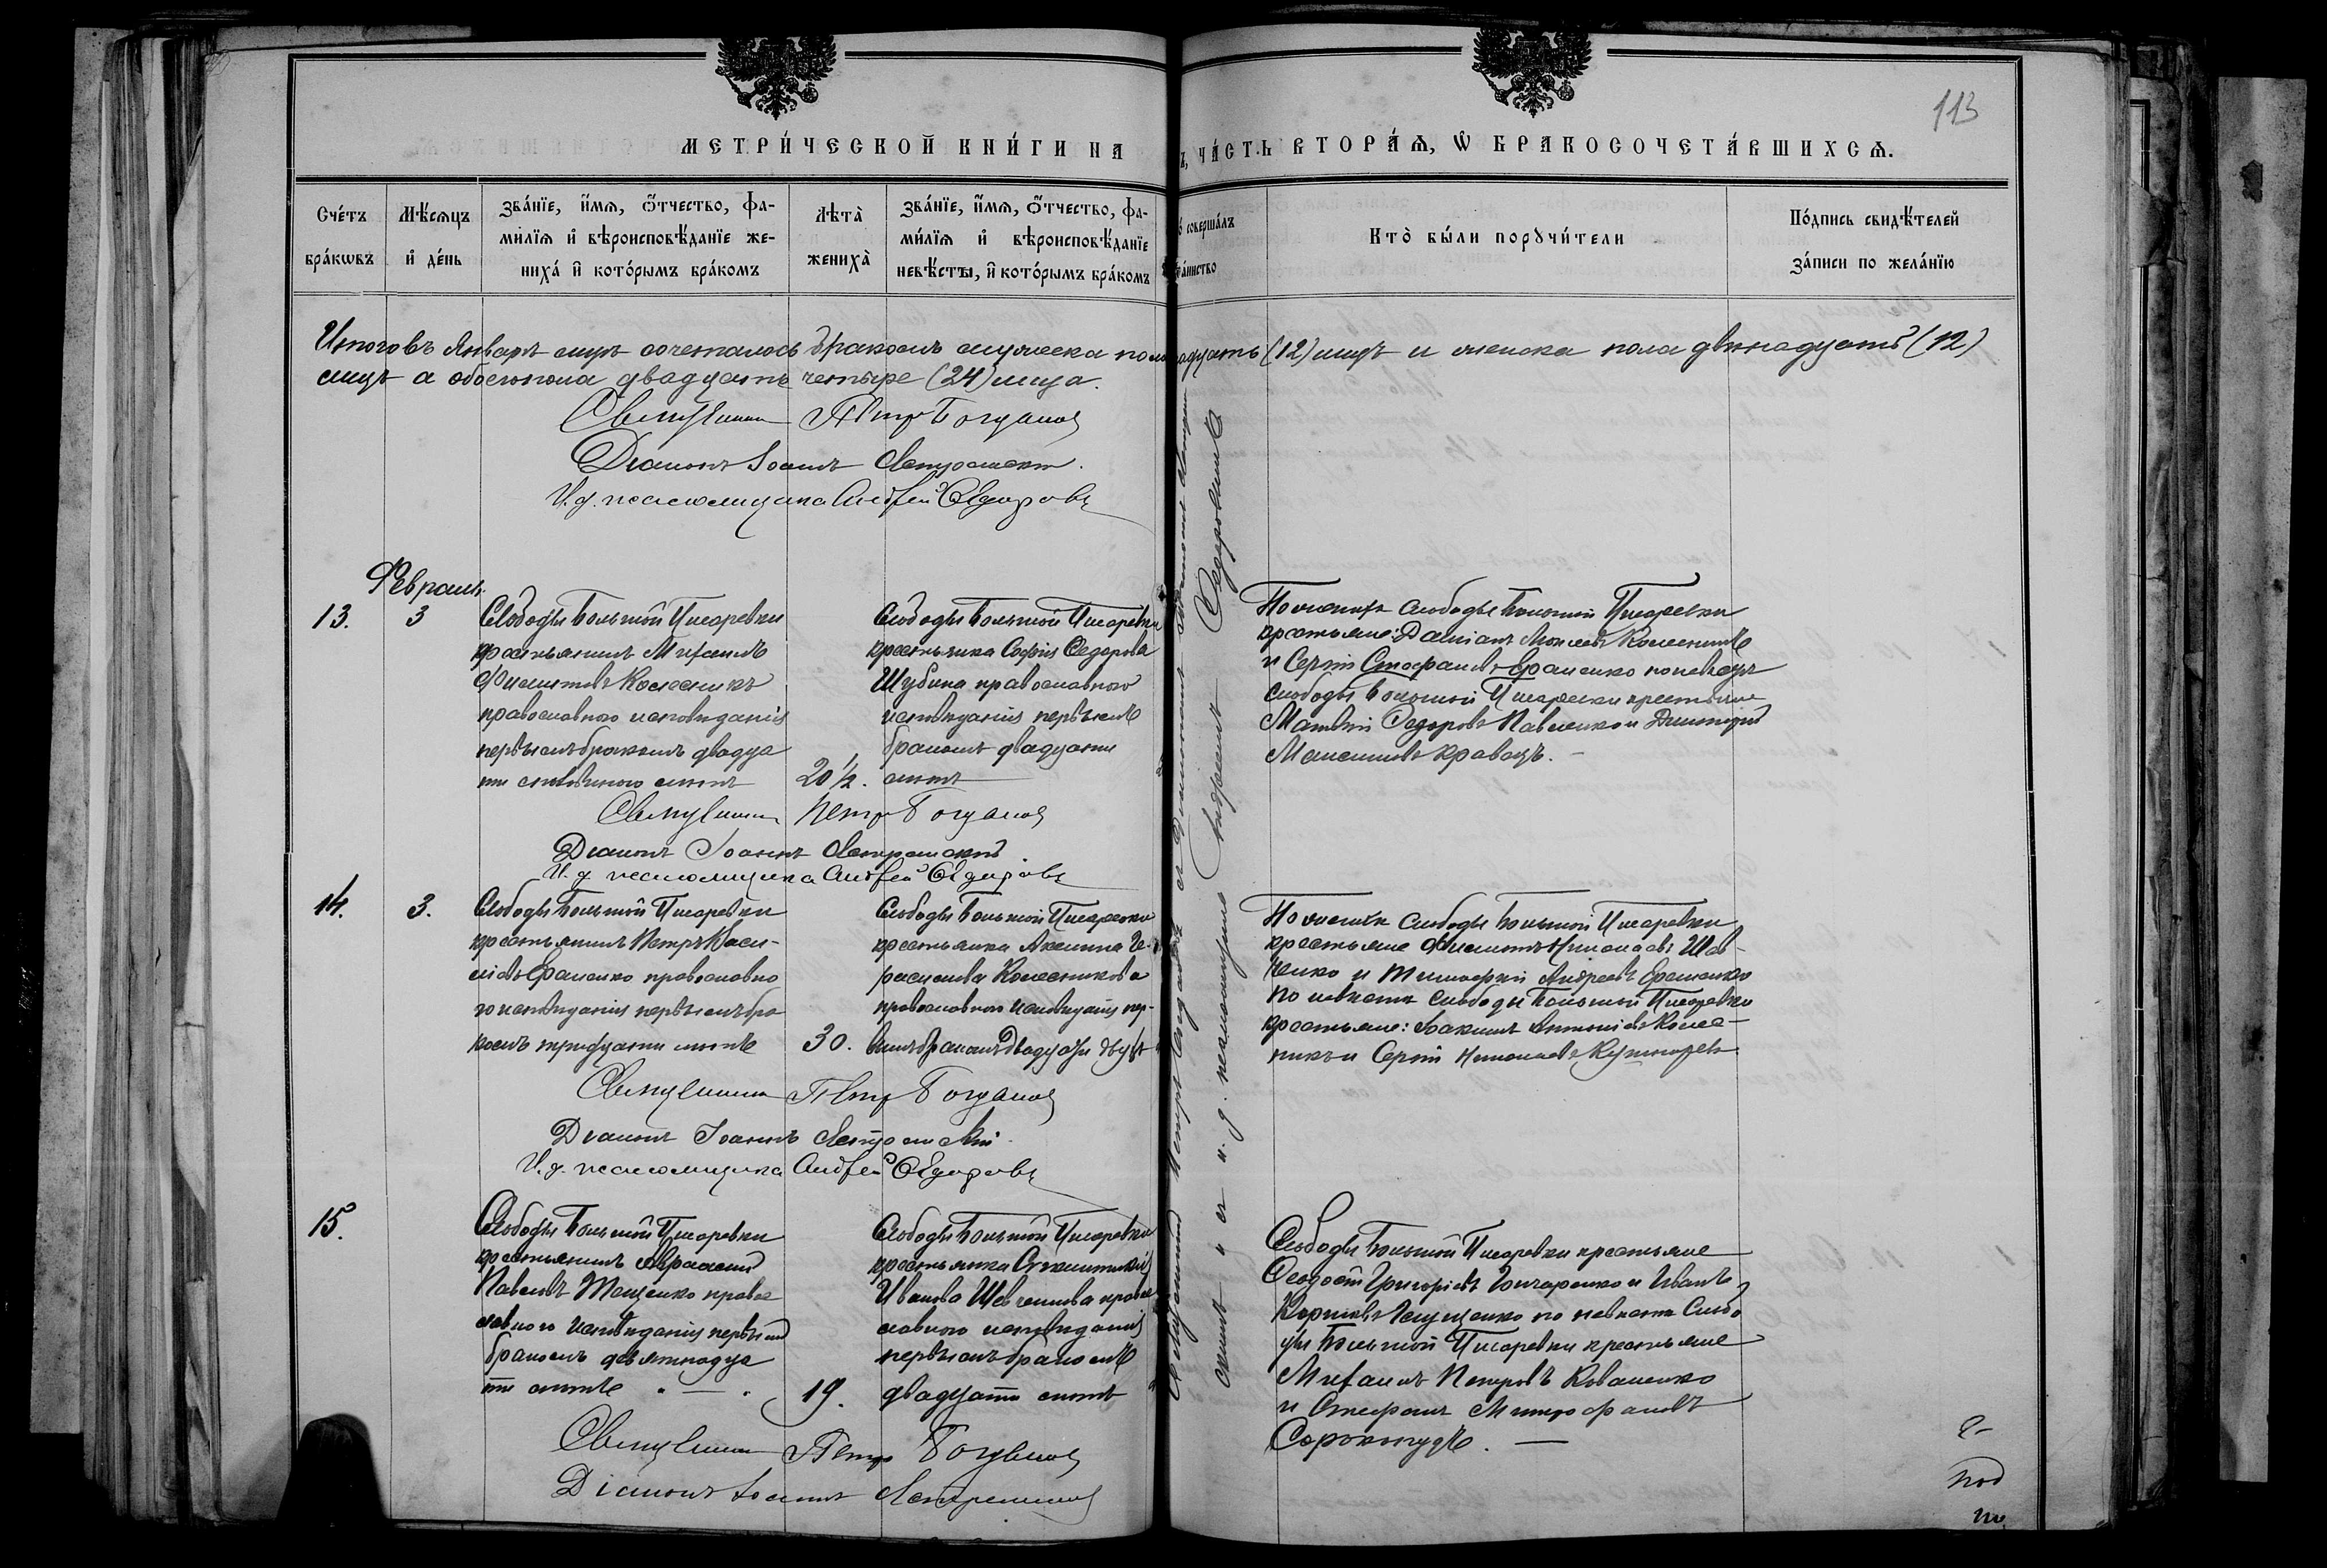 113
МЕТРИ́ЧЕСКОЙ КНИ́ГИ НА
Ъ, ЧА́СТЬ ВТОРА́Ѧ, Ѡ БРАКОСОЧЕТА́ВШИХСѦ.
Сче́тъ бра́кѡвъ
Мѣ́сѧцъ и҆ де́нь
Зва́нїе, и҆́мѧ, ѻ҆́тчество, фа-
ми́лїѧ и҆ вѣроисповѣ́данїе же-
ниха́ и҆ кото́рымъ бра́комъ
Лѣта̀
жениха̀
Зва́нїе, и҆́мѧ, ѻ҆́тчество, фа-
ми́лїѧ и҆ вѣроисповѣ́данїе
невѣ́сты, и҆ кото́рымъ бра́комъ
соверша́лъ
Кто̀ бы́ли порꙋчи́тели
По́дпись свидѣ́телей
за́писи по жела́нїю
Итого въ Январѣ м-цѣ сочеталось бракомъ мужеска пола
адцать (12) лицъ и женска пола двѣнадцать (12)
лицъ а обоего пола двадцать четыре (24) лица.
Священникъ Петръ Богданов
Діаконъ Іоаннъ
И. д. псаломщика Андрей Ѳедоровъ
Февраль
13.
3
Слободы Большой Писаревки
крестьянинъ Михаилъ
Филиповъ Колесникъ
православнаго исповѣданія
первымъ бракомъ двадца
ти съ половиною лѣтъ
20 1/2.
Слободы Большой Писаревки
крестьянка Софія Ѳедорова
Шубина православнаго
исповѣданія первымъ
бракомъ двадцати
лѣтъ
По женихѣ слободы Большой Писаревки
крестьяне: Даміанъ Колесникъ
и Сергій Стефановъ Ераменко по невѣстѣ
слободы Большой Писаревки крестьяне
Матвѣй Ѳедоровъ Павленко и Димитрій
Кравецъ. —
Священникъ Петръ Богданов
Діаконъ Іоаннъ
И. д. псаломщика Андрей Ѳедоровъ
14.
3.
Слободы Большой Писаревки
крестьянинъ Петръ Васи-
ліевъ Ераменко православна
го исповѣданія первымъ бра
комъ тридцати лѣтъ
30.
Слободы Большой Писаревки
крестьянка Акилина Ге-
расимова Колесникова
православнаго исповѣданія пер-
вымъ бракомъ двадцати двухъ
По женихѣ слободы Большой Писаревки
крестьяне Филипъ Николаевъ Шев-
ченко и Тимоѳей Андреевъ Ераменко
по невѣстѣ слободы Большой Писаревки
крестьяне: Іоакимъ Антоніевъ Колес-
никъ и Сергій Николаевъ
Священникъ Петръ Богданов
Діаконъ Іоаннъ
И. д. псаломщика Андрей Ѳедоровъ
15.
Слободы Большой Писаревки
крестьянинъ
Павловъ Тащенко право
славнаго исповѣданія первымъ
бракомъ девятнадца
ти лѣтъ . — .
19.
Слободы Большой Писаревки
крестьянка
Иванова Шевченкова право
славнаго исповѣданія
первымъ бракомъ
двадцати лѣтъ
Слободы Большой Писаревки крестьяне
Ѳеодосій Григоріевъ Гончаренко и Иванъ
по невѣстѣ Слобо
ды Большой Писаревки крестьяне
Михаилъ Петровъ Коваленко
и Стефанъ Митрофановъ
Сорокопудъ. —
Священникъ Петръ Богданов
Діаконъ Іоаннъ
Священникъ Петръ Богдановъ съ Діакономъ
съ и. д. псаломщика Андреемъ Ѳедоровымъ